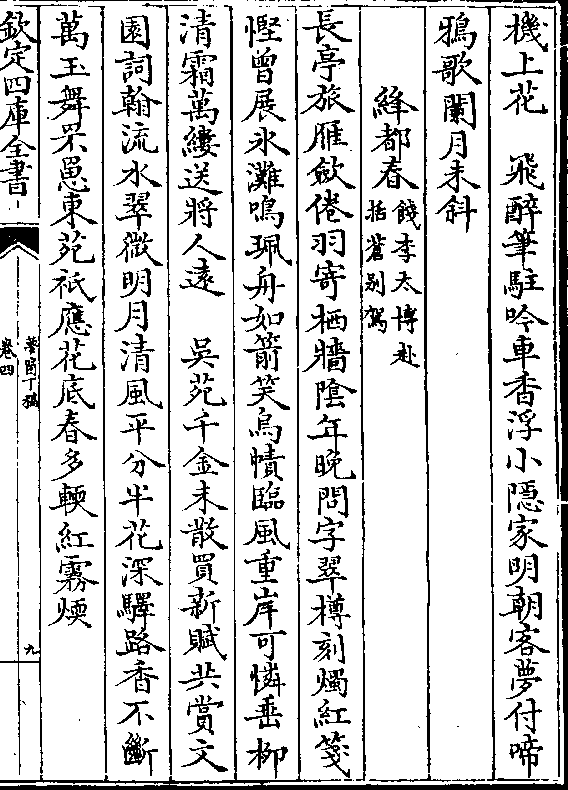 機上花　飛醉筆駐吟車香浮小隱家明朝客夢付啼
鴉歌闌月未斜
絳都春餞李太博赴
括蒼别駕
長亭旅雁歛倦羽寄栖牆陰年晚問字翠樽刻燭紅箋
慳曾展氷灘鳴珮舟如箭笑烏幘臨風重岸可憐垂柳
清霜萬縷送將人遠　吳苑千金未散買新賦共賞文
園詞翰流水翠微明月清風平分半花深驛路香不斷
萬玉舞罘罳東苑祇應花底春多輭紅霧煖
欽定四庫全書
夢窗丁稿
卷四
九